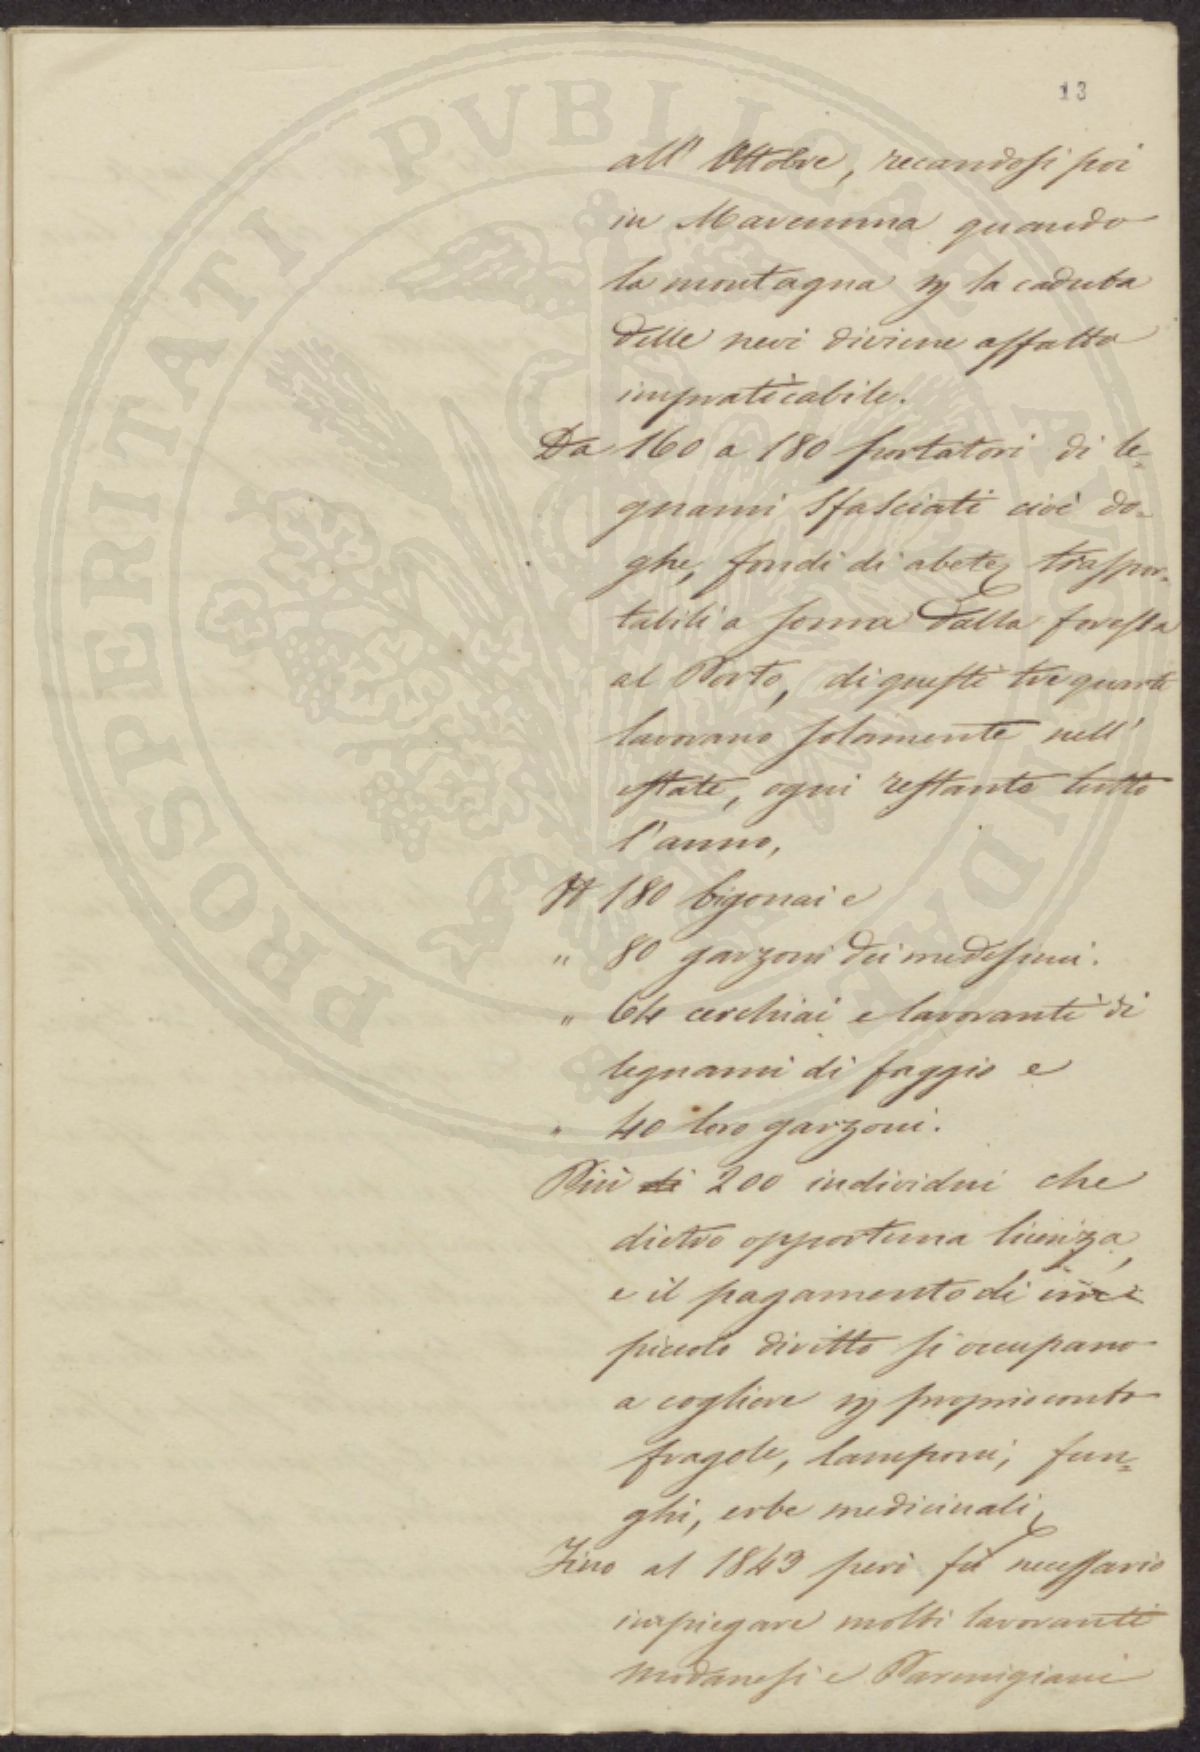 13
all' Ottobre, recandosi poi
in Maremma quando
la montagna p la caduta
delle nevi diviene affatto
impraticabile.
Da 160 a 180 portatori di le=
gnami sfasciati cioè do=
ghe, fondi di abete, traspor=
tabili a soma dalla foresta
al Porto, di questi tre quarti
lavorano solamente nell'
estate, ogni restante tutto
l'anno,
N 180 bigonai e
" 80 garzoni dei medesimi.
" 64 cerchiai e lavoranti di
legnami di faggio e
" 40 loro garzoni.
Più di 200 individui che
dietro opportuna licenza,
e il pagamento di
piccolo diritto si occupano
a cogliere p proprio conto
fragole, lamponi, fun=
ghi, erbe medicinali,
Fino al 1843 però fù necessario
impiegare molti lavoranti
modanesi e Parmigiani
PROSPERITATI PVBLICAE AVGENDAE